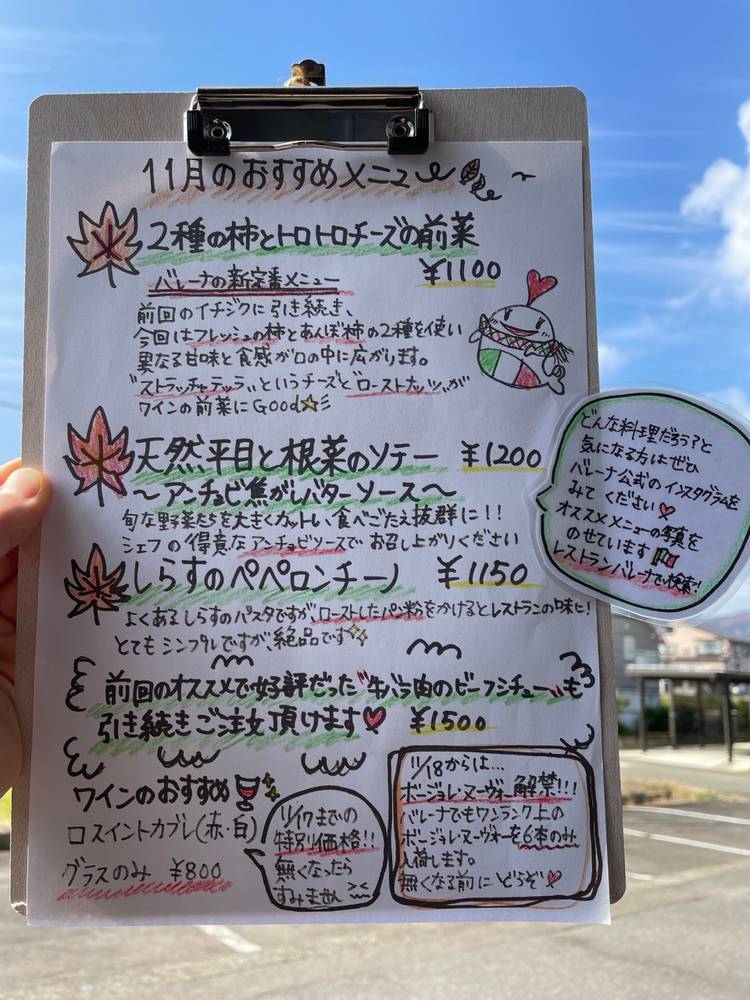 11月のおすすめメニュー
2種の柿とトロトロチーズの前菜
¥1100
バレーナの新定番メニュー
前回のイチジクに引き続き、
今回はフレッシュの柿とあんぽ柿の2種を使い
異なる甘味と食感が口の中に広がります。
"ストラッチャテッラ"というチーズと"ローストナッツ"が
ワインの前菜にGood
天然平目と根菜のソテー ¥1200
〜アンチョビ焦がしバターソース〜
旬な野菜たちを大きくカットし、食べごたえ抜群に!!
シェフの得意なアンチョビソースでお召し上がりください
しらすのペペロンチーノ ¥1150
よくあるしらすのパスタですが、ローストしたパン粉をかけるとレストランの味に!
とてもシンプルですが、絶品です
前回のオススメで好評だった"牛バラ肉のビーフシチュー"も
引き続きご注文頂けます ¥1500
ワインのおすすめ
ロスイントカブレ(赤・白)
グラスのみ ¥800
11/17までの
特別価格!!
無くなったら
すみません
11/18からは…
ボージョレ・ヌーヴォー解禁!!!
バレーナでもワンランク上の
ボージョレ・ヌーヴォーを6本のみ
入荷します。
無くなる前にどうぞ
どんな料理だろう?と
気になる方はぜひ
バレーナ公式のインスタグラムを
みてください
オススメメニューの写真を
のせています
レストランバレーナで検索!